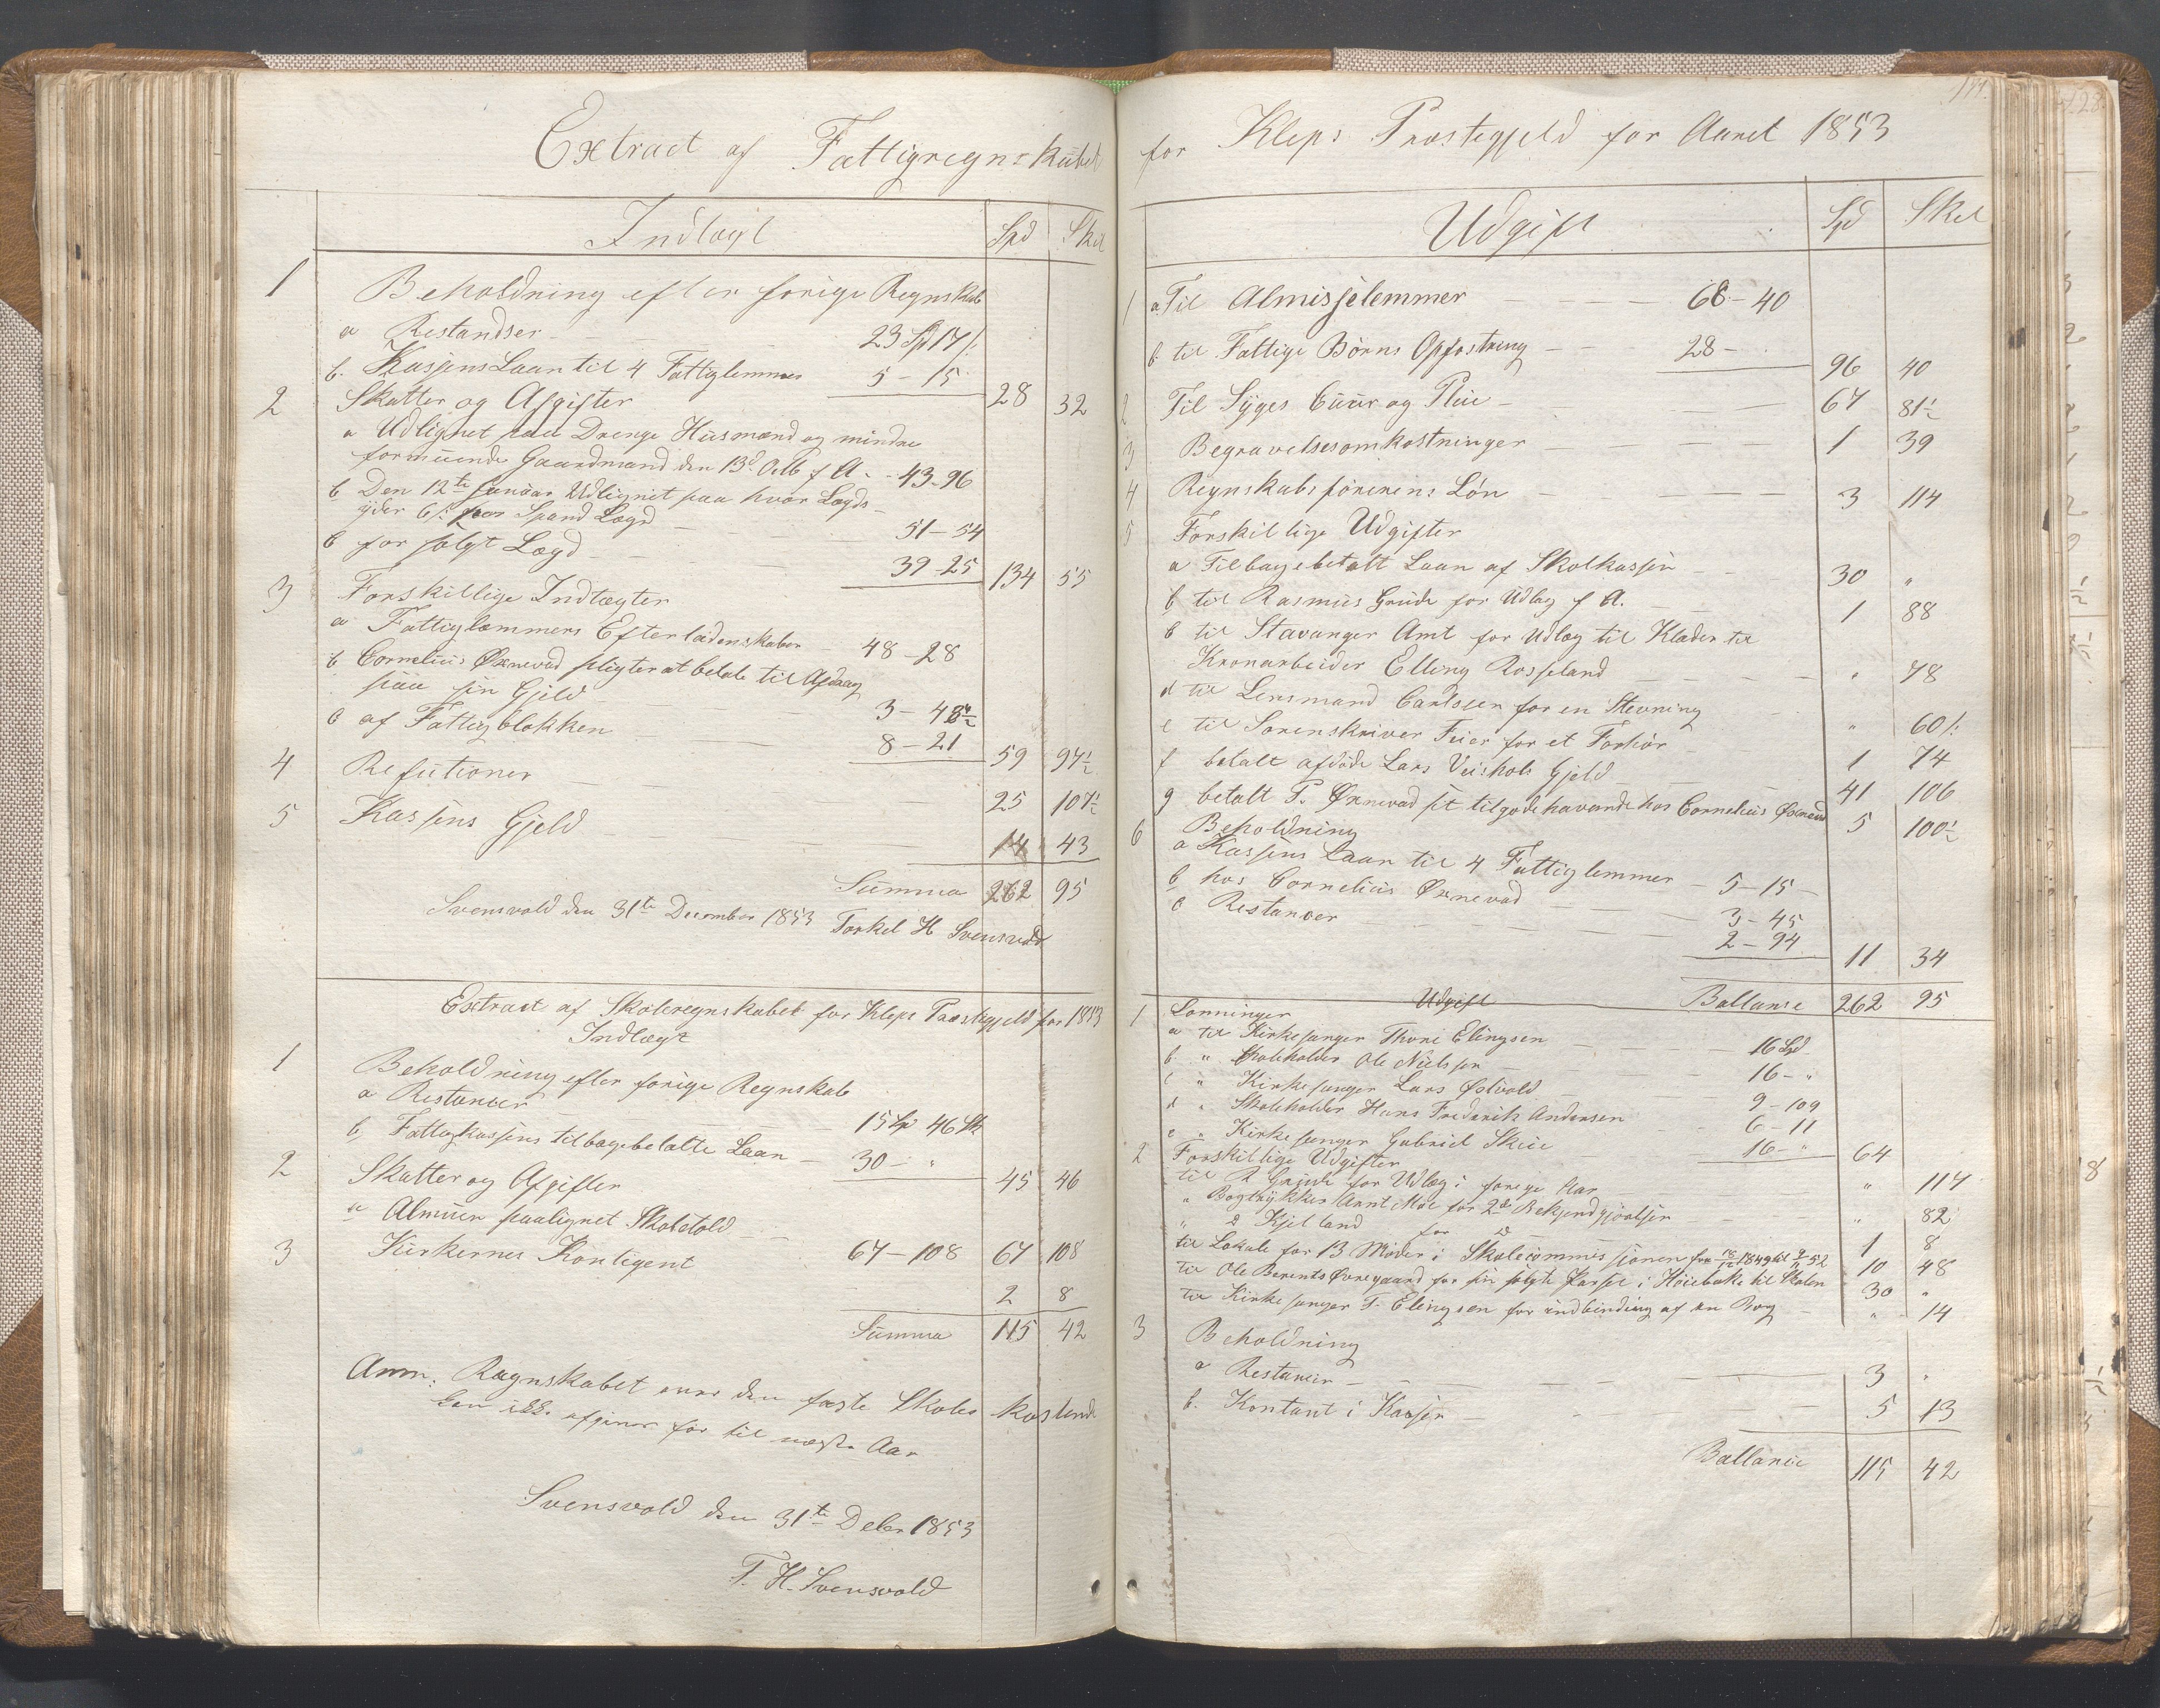 Extract af Fattigregnskabet
Indtægt Spd Skil
1 Beholdning efter forige Regnskab
a Restandser 23 Spd 17 s:
b. Kassens Laan til 4 Fattiglemmer 5 - 15 28 32
2 Skatter og Afgifter
a Udlignet paa Drenge Husmænd og mindre
formuende Gaardmænd den 13d Octb f A. 43-96
b Den 12te Januar Udlignet paa hver Lægds-
yder 6 s: pr Spand Lægd 51-54
c for solgt Lægd 39-25 134 55
3 Forskillige Indtægter
a Fattiglemmers Efterladenskaber 48-28
b Cornelius Øxnevad pligter at betale til Afdrag
paa sin Gjeld 3-48½
c af Fattigblokken 8-21 59 97½
4 Refutioner 25 107½
5 Kassens Gjeld 14 43
Summa 262 95
Svensvold den 31te December 1853 Torkel H Svensvold
Extract af Skoleregnskabet for Kleps Præstegjeld for 1853
Indtægt
1 Beholdning efter forige Regnskab
a Restancer 15 Sp 46 Sk
b, Fattigkassens tilbagebetalte Laan 30 - " 45 46
2 Skatter og Afgifter
a Almuen paalignet Skoletold 67-108 67 108
3 Kirkernes Kontigent 2 8
Summa 115 42
Anm: Regnskabet over den faste Skoles kostende
kan ikke afgives før til næste Aar
Svensvold den 31te Debr 1853
T. H. Svensvold
for Kleps Præstegjeld for Aaret 1853
Udgift Spd Skil
1 a Til Almisselemmer 68-40
b til Fattige Børns Opfostring 28- 96 40
2 Til Syges Cuur og Pleie 67 81½
3 Begravelsesomkostninger 1 39
4 Regnskabsførerens Løn 3 114
5 Forskillige Udgifter
a Tilbagebetalt Laan af Skolkassen 30 "
b til Rasmus Grude for Udlæg f A. 1 88
c til Stavanger Amt for Udlæg til Klæder til
Kronarbeider Elling Rosseland " 78
d til Lensmand Carlssen for en Stevning " 60 s:
e til Sorenskriver Feier for et Forhør 1 74
f betalt afdøde Lars Veishols Gjeld 41 106
g betalt T. Øxnevad sit tilgodehavande hos Cornelius Øxnevad 5 100½
6 Beholdning
a Kassens Laan til 4 Fattiglemmer 5-15-
b hos Cornelius Øxnevad 3-45
c Restancer 2-94 11 34
Udgift Ballanse 262 95
1 Lønninger
a til Kirkesanger Thore Elingsen 16 Spd
b. " Skoleholder Ole Nielsen 16-"
c " Kirkesanger Lars Østvold 9-109
d " Skoleholder Hans Frederik Andersen 6-11
e " Kirkesanger Gabriel Skeie 16-" 64
2 Forskillige Udgifter
til R Grude for Udlæg i forige Aar " 117
" Bogtrykker for 2de Bekjendtgjørelser " 82
" Kjelland for 1 8
til Lokale for 13 Møder i Skolecommissionen fra 1849 til 52 10 48
til Ole Berents Øvregaard for sin solgte i til Skolen 30 "
til Kirkesanger T. Elingsen for indbinding af en Bog " 14
3 Beholdning
a Restancer 3 "
b. Kontant i Kassen 5 13
Ballance 115 42